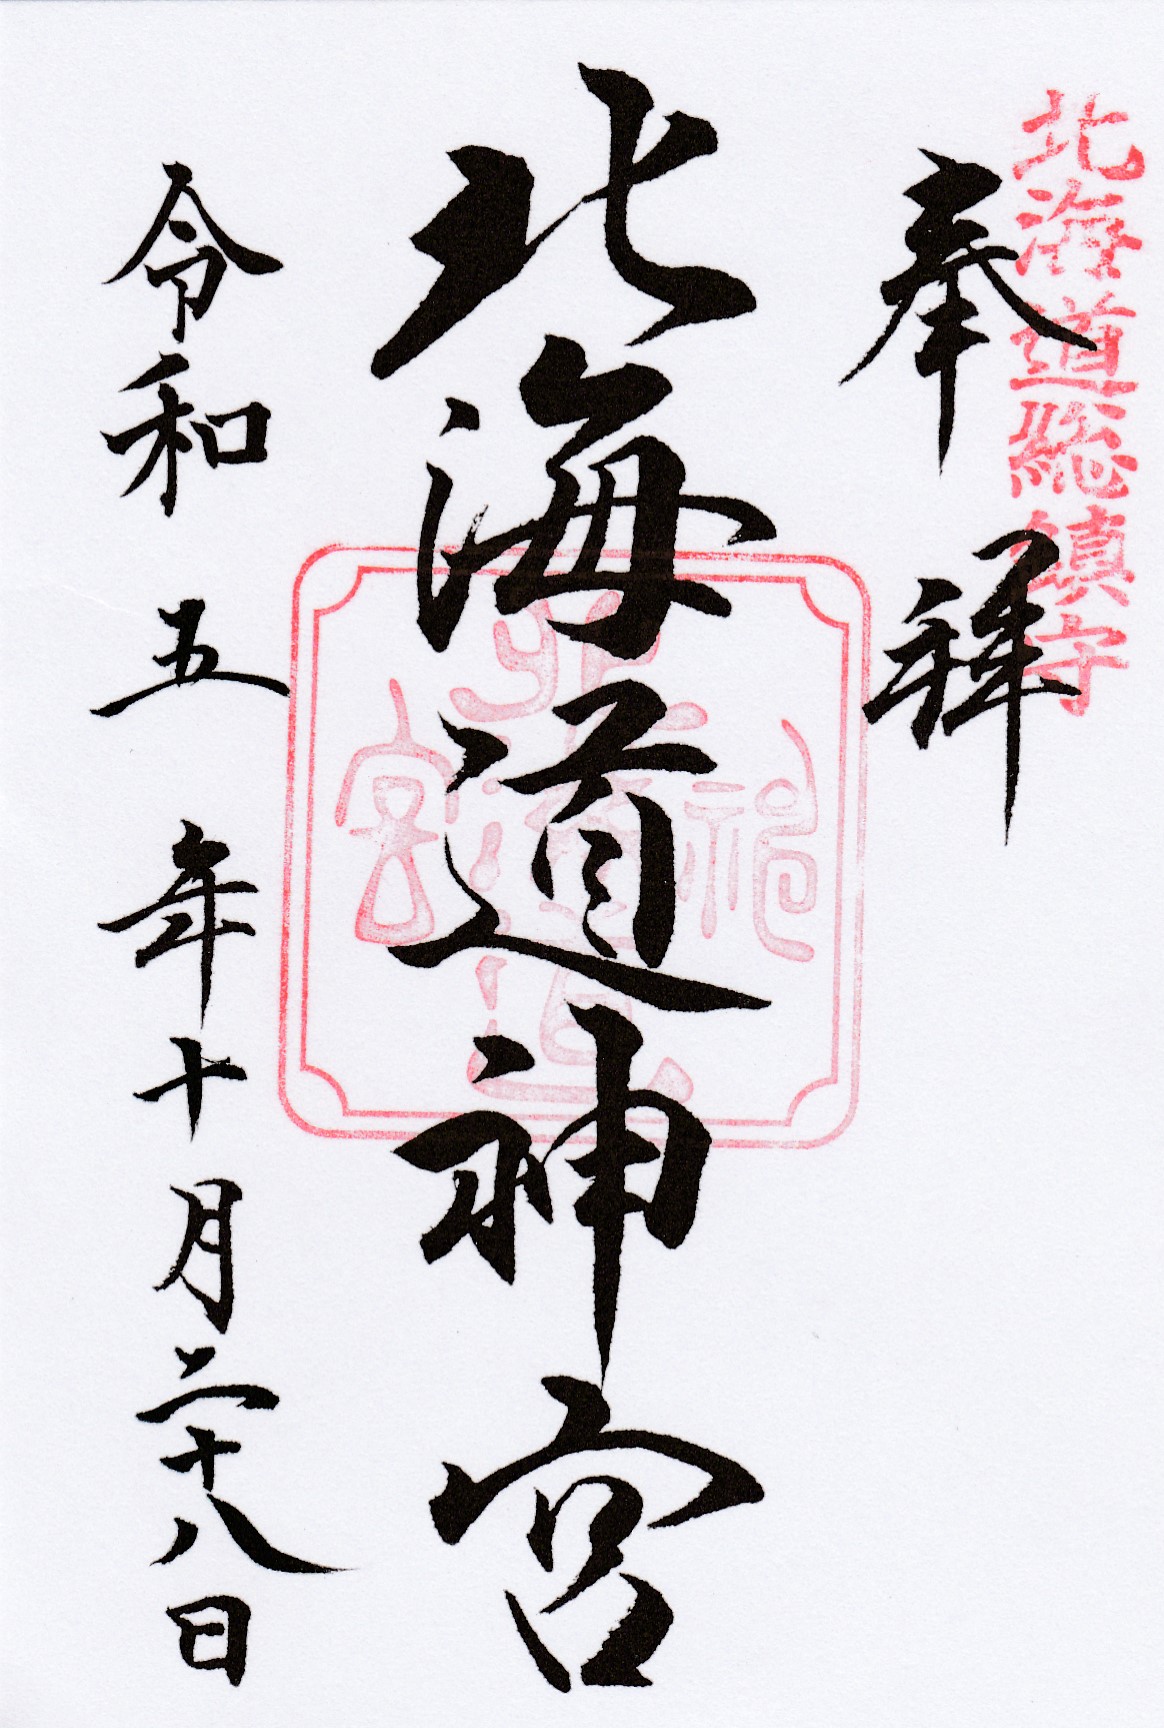 北海道総鎮守
奉拝
北海道神宮
令和五年十月二十八日